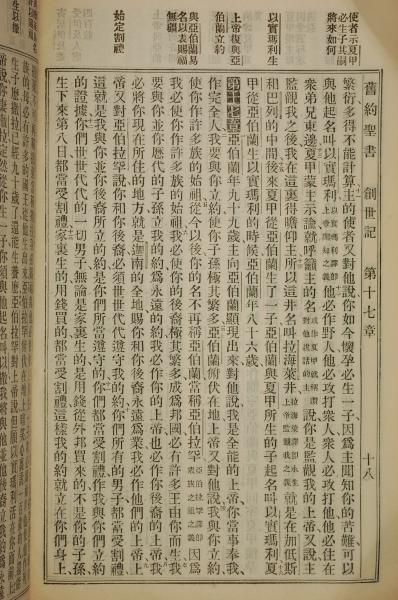 使者示夏甲
必生子其嗣
將來如何
以實瑪利生
上帝復與亞
伯蘭立約
與亞伯蘭易
名以表賜福
無疆
始定割禮
舊約聖書 創世記 第十七章 十八
繁衍多得不能計算主的使者又對他說你如今懷孕必生一子因爲主聞知你的苦難可以
與他起名叫以實瑪利以實瑪利譯即上帝聞知之義他必作野人他必攻打衆人衆人必攻打他他必住在
衆弟兄東邊夏甲蒙主示諭就呼籲主的名或作夏甲就稱謂對他說話的主說你是監觀我的上帝又說主
監觀我之後我在這裏得瞻仰主所以這井名叫拉海萊井拉海萊譯即永生上帝監觀我之義就是在加低斯
和巴列的中間後來夏甲從亞伯蘭生了一子亞伯蘭與夏甲所生的子起名叫以實瑪利夏
甲從亞伯蘭生以實瑪利的時候亞伯蘭年八十六歲
第十七章亞伯蘭年九十九歲主向亞伯蘭顯現出來對他說我是全能的上帝你當事奉我
作完全人我要與你立約使你子孫極其繁多亞伯蘭俯伏在地上帝又對他說我與你立約
使你作許多族的始祖從今以後你的名不再稱亞伯蘭當稱亞伯拉罕亞伯拉罕譯即衆族之祖之義因爲
我必使你作許多族的始祖我必使你的後裔極其繁多成爲邦國必有許多王由你而生我
要與你並你歷代的子孫立我的約爲永遠的約我必作你的上帝也必作你後裔的上帝我
必將你現在所住的地方就是迦南的全地賜你和你後裔永遠爲業我必作他們的上帝上
帝又對亞伯拉罕說你和你後裔必須世世代代遵守我的約你們所有的男子都當受割禮
這就是我與你並你後裔所立的約是你們所當遵守的你們都當受割禮作我與你們立約
的證據你們世世代代的一切男子無論是家裏生的是用錢從外邦買來的不是你的子孫
生下來第八日都當受割禮家裏生的用錢買的都當受割禮這樣我的約就立在你們身上